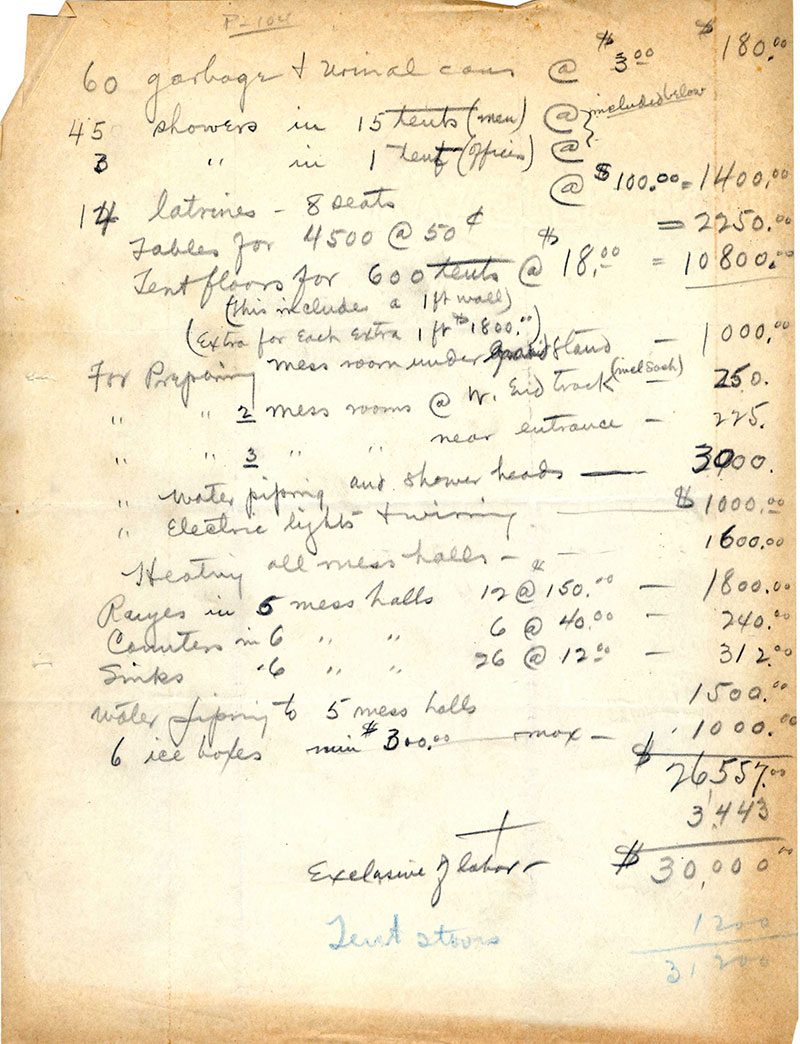 P-104
60 garbage & urinal cans @ $3.00 $180.00
45 showers in 15 tents (men) @ } included below
3 " in 1 tent (offices) @
14 latrines - 8 seats @ $100.00 = 1400.00
Tables for 4500 @ 50¢ = 2250.00
Tent floors for 600 tents @ $18.00 = 10800.00
(this includes a 1ft wall)
(Extra for Each Extra 1 ft $1800.00)
For Preparing mess room under grand stand — 1000.00
" " 2 mess rooms @ W. End track (incl Sash) — 250.
" " 3 " " near entrance — 225.
" Water piping and shower heads — 3000.
" Electric lights & wiring — $1000.00
Heating all mess halls - — 1600.00
Ranges in 5 mess halls 12 @ $150.00 — 1800.00
Counters in 6 " " 6 @ 40.00 — 240.00
Sinks "6 " " 26 @ 12.00 — 312.00
Water piping to 5 mess halls 1500.00
6 ice boxes min $300.00 — max — 1000.00
$26,557.00
3,443
Exclusive of labor - $30,000.00
Tent stoves 1200
31200